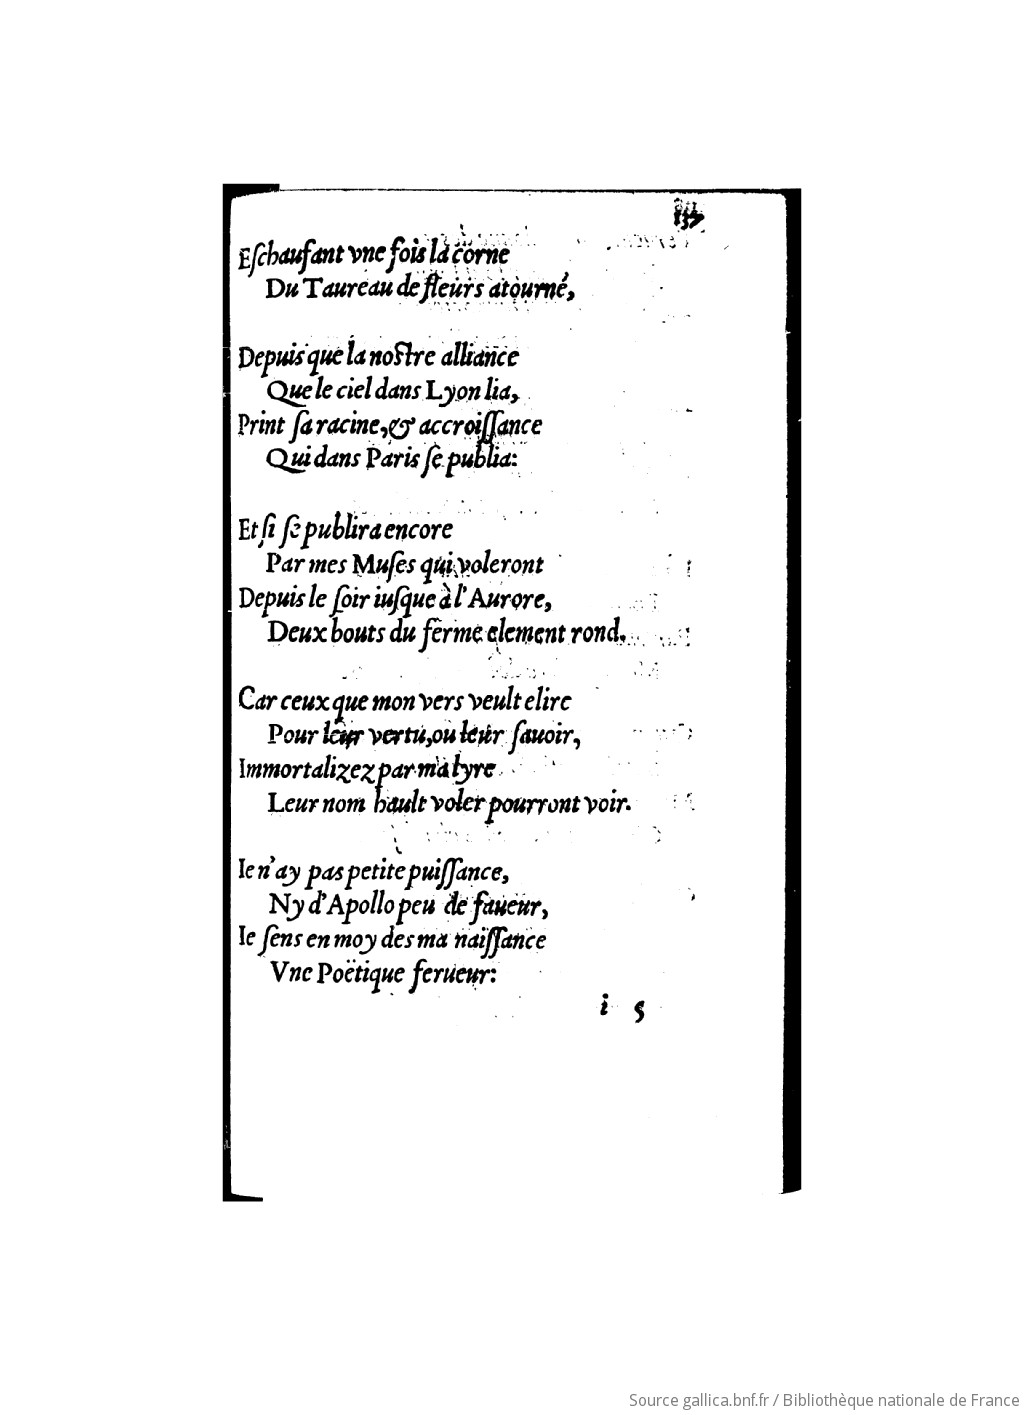 137
Eſchaufant vne fois la corne
Du Taureau de fleurs atourné,
Depuis que la noſtre alliance
Que le ciel dans Lyon lia,
Print ſa racine, & accroiſſance
Qui dans Paris ſe publia:
Et ſi ſe publira encore
Par mes Muſes qui voleront
Depuis le ſoir iuſque à l'Aurore,
Deux bouts du ferme element rond.
Car ceux que mon vers veult elire
Pour leur vertu, ou leur ſauoir,
Immortalizez par ma lyre
Leur nom hault voler pourront voir.
Ie n'ay pas petite puiſſance,
Ny d'Apollo peu de faueur,
Ie ſens en moy des ma naiſſance
Vne Poëtique ferueur:
i 5
Source gallica.bnf.fr / Bibliothèque nationale de France